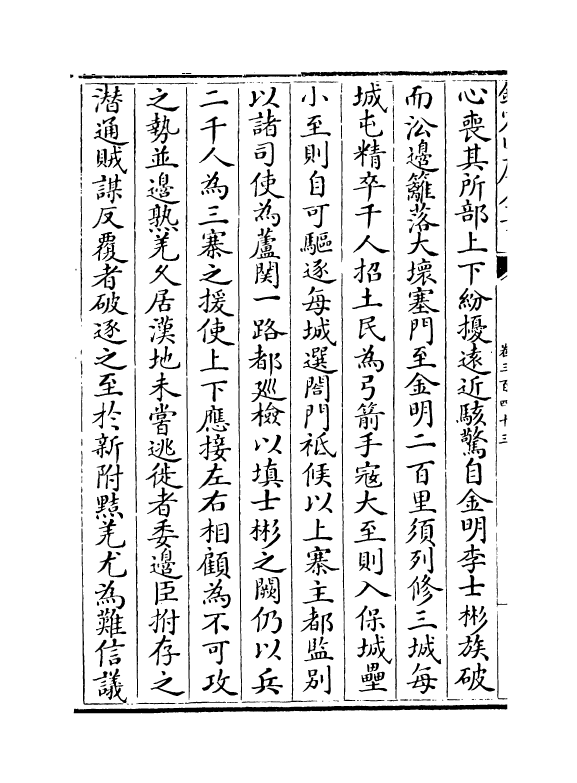 心喪其所部上下紛擾遠近駭驚自金明李士彬族破
而㳂邊籬落大壞塞門至金明二百里須列修三城每
城屯精卒千人招土民為弓箭手宼大至則入保城壘
小至則自可驅逐每城選閤門祗候以上寨主都監别
以諸司使為蘆関一路都廵檢以填士彬之闕仍以兵
二千人為三寨之援使上下應接左右相顧為不可攻
之勢並邊熟羌久居漢地未嘗逃徙者委邊臣拊存之
潜通賊謀反覆者破逐之至於新附黠羌尤為難信議
卷三百四十三